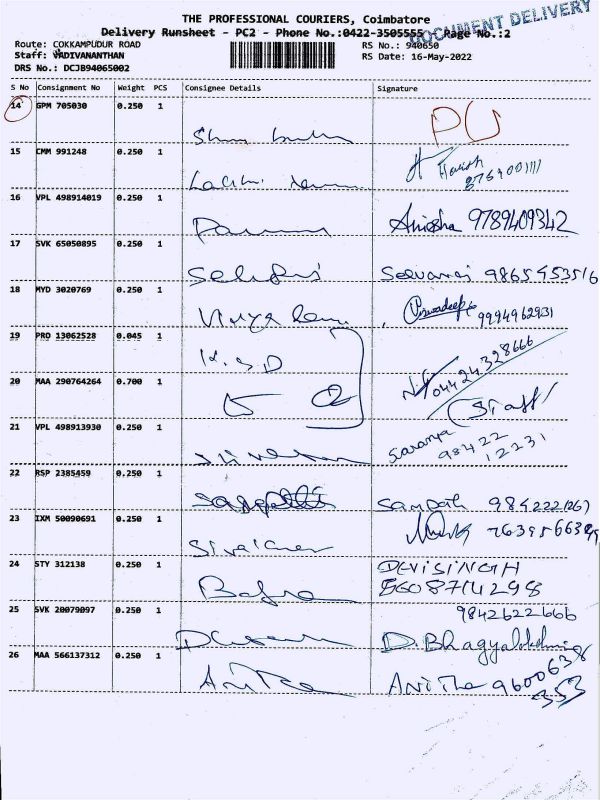 THE PROFESSIONAL COURIERS, Coimbatore
DOCUMENT DELIVERY
Delivery Runsheet - PC2 - Phone No.:0422-3505555 Page No.:2
Route: COKKAMPUDUR ROAD RS No.: 940650
Staff: VADIVANANTHAN RS Date: 16-May-2022
DRS No.: DCJB94065002
S No Consignment No Weight PCS Consignee Details Signature
14 GPM 705030 0.250 1 PU
15 CMM 991248 0.250 1 Harish
16 VPL 498914019 0.250 1 Anisha 9789409342
17 SVK 65050895 0.250 1 Selvaraj 9865453516
18 MYD 3020769 0.250 1 9994962931
19 PRO 13062528 0.045 1 K.S.D 04424328666
20 MAA 290764264 0.700 1 (Staff)
21 VPL 498913930 0.250 1 Saranya
98422
12231
22 RSP 2385459 0.250 1 Sampath 984222(26)
23 IXM 50090691 0.250 1
24 STY 312138 0.250 1 DEVISINGH
8608714298
25 SVK 20079097 0.250 1 9842622666
D. Bhagyalakshmi
26 MAA 566137312 0.250 1 Anitha Anitha 9600638
353